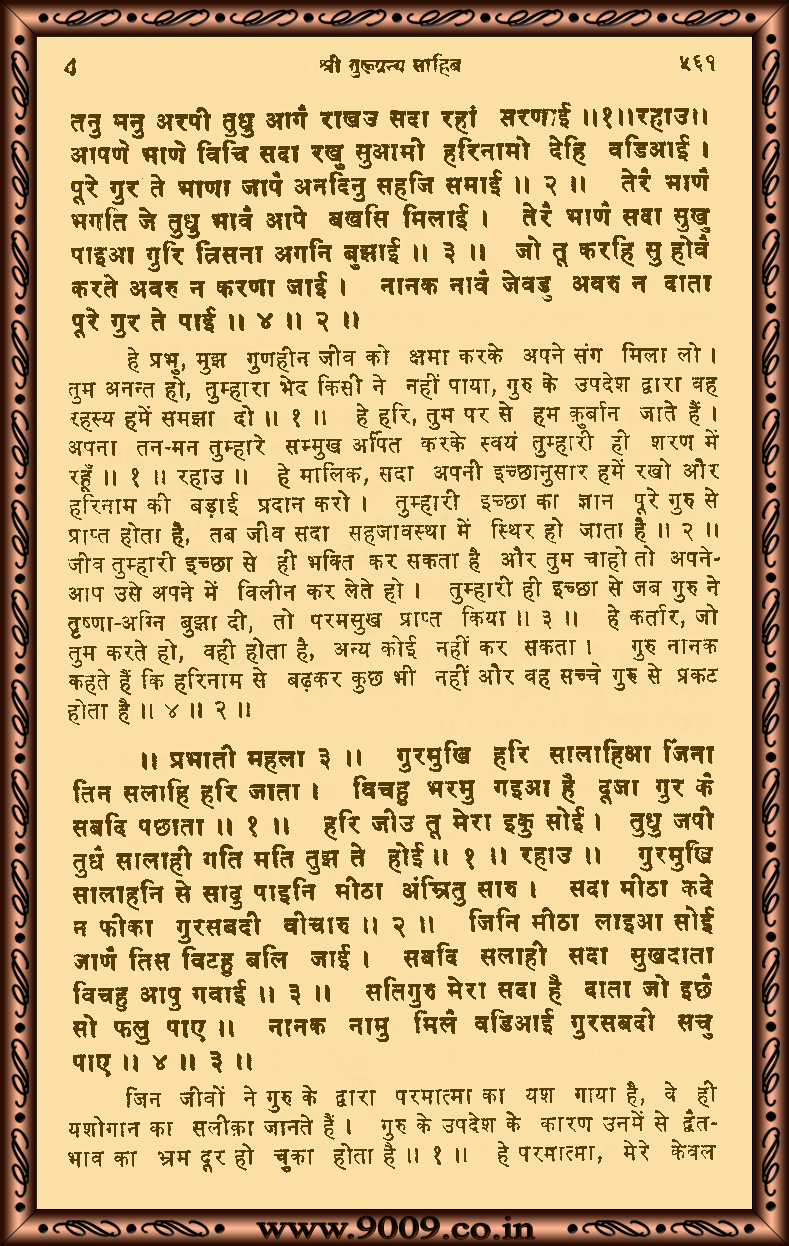 4 श्री गुरूग्रन्थ साहिब ५६१
तनु मनु अरपी तुधु आगै राखउ सदा रहां सरणाई ॥१॥रहाउ॥
आपणे भाणे विचि सदा रखु सुआमी हरिनामो देहि वडिआई ।
पूरे गुर ते भाणा जापै अनदिनु सहजि समाई ॥ २ ॥ तेरै भाणै
भगति जे तुधु भावै आपे बखसि मिलाई । तेरै भाणै सदा सुखु
पाइआ गुरि त्रिसना अगनि बुझाई ॥ ३ ॥ जो तू करहि सु होवै
करते अवरु न करणा जाई । नानक नावै जेवडु अवरु न दाता
पूरे गुर ते पाई ॥ ४ ॥ २ ॥
हे प्रभु, मुझ गुणहीन जीव को क्षमा करके अपने संग मिला लो ।
तुम अनन्त हो, तुम्हारा भेद किसी ने नहीं पाया, गुरु के उपदेश द्वारा वह
रहस्य हमें समझा दो ॥ १ ॥ हे हरि, तुम पर से हम क़ुर्बान जाते हैं ।
अपना तन-मन तुम्हारे सम्मुख अर्पित करके स्वयं तुम्हारी ही शरण में
रहूँ ॥ १ ॥ रहाउ ॥ हे मालिक, सदा अपनी इच्छानुसार हमें रखो और
हरिनाम की बड़ाई प्रदान करो । तुम्हारी इच्छा का ज्ञान पूरे गुरु से
प्राप्त होता है, तब जीव सदा सहजावस्था में स्थिर हो जाता है ॥ २ ॥
जीव तुम्हारी इच्छा से ही भक्ति कर सकता है और तुम चाहो तो अपने-
आप उसे अपने में विलीन कर लेते हो । तुम्हारी ही इच्छा से जब गुरु ने
तृष्णा-अग्नि बुझा दी, तो परमसुख प्राप्त किया ॥ ३ ॥ हे कर्तार, जो
तुम करते हो, वही होता है, अन्य कोई नहीं कर सकता । गुरु नानक
कहते हैं कि हरिनाम से बढ़कर कुछ भी नहीं और वह सच्चे गुरु से प्रकट
होता है ॥ ४ ॥ २ ॥
॥ प्रभाती महला ३ ॥ गुरमुखि हरि सालाहिआ जिंना
तिन सलाहि हरि जाता । विचहु भरमु गइआ है दूजा गुर कै
सबदि पछाता ॥ १ ॥ हरि जीउ तू मेरा इकु सोई । तुधु जपी
तुधै सालाही गति मति तुझ ते होई ॥ १ ॥ रहाउ ॥ गुरमुखि
सालाहनि से सादु पाइनि मीठा अंम्रितु सारु । सदा मीठा कदे
न फीका गुरसबदी वीचारु ॥ २ ॥ जिनि मीठा लाइआ सोई
जाणै तिस विटहु बलि जाई । सबदि सलाही सदा सुखदाता
विचहु आपु गवाई ॥ ३ ॥ सतिगुरु मेरा सदा है दाता जो इछै
सो फलु पाए ॥ नानक नामु मिलै वडिआई गुरसबदी सचु
पाए ॥ ४ ॥ ३ ॥
जिन जीवों ने गुरु के द्वारा परमात्मा का यश गाया है, वे ही
यशोगान का सलीक़ा जानते हैं । गुरु के उपदेश के कारण उनमें से द्वैत-
भाव का भ्रम दूर हो चुका होता है ॥ १ ॥ हे परमात्मा, मेरे केवल
www.9009.co.in